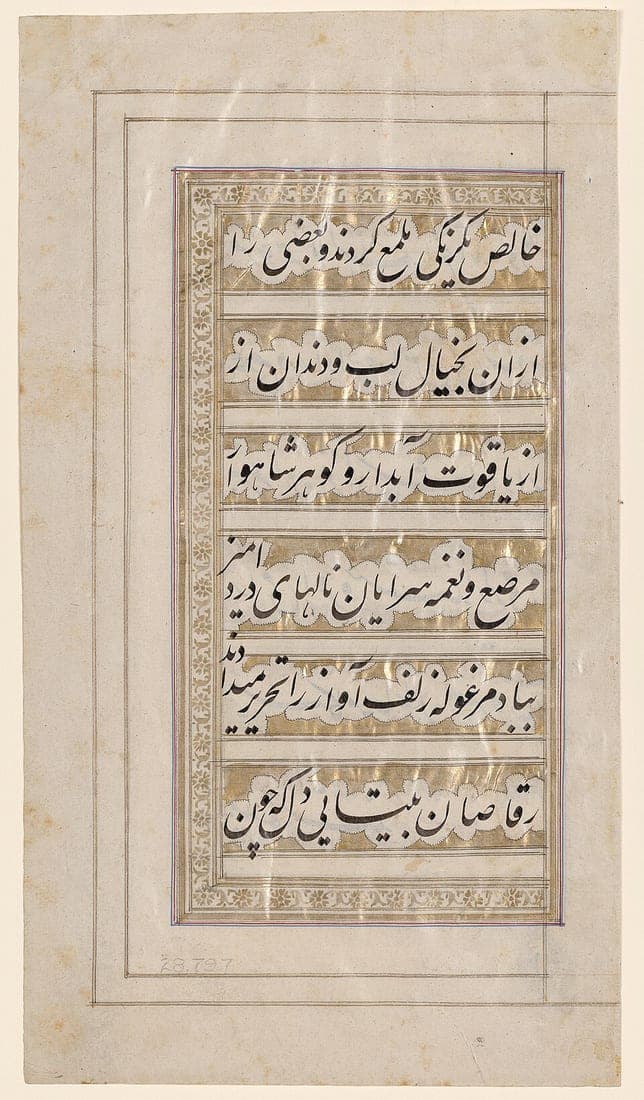 خالص یکرنگی ملمع کردند و بعضی را
ازان بخیال لب و دندان از
از یاقوت آبدار و گوهر شاهوار
مرصع و نغمه سرایان نالهای درد امیز
بیاد مرغوله زلف آواز را تحریر میدادند
رقاصان بیتابی دل که چون
28.797